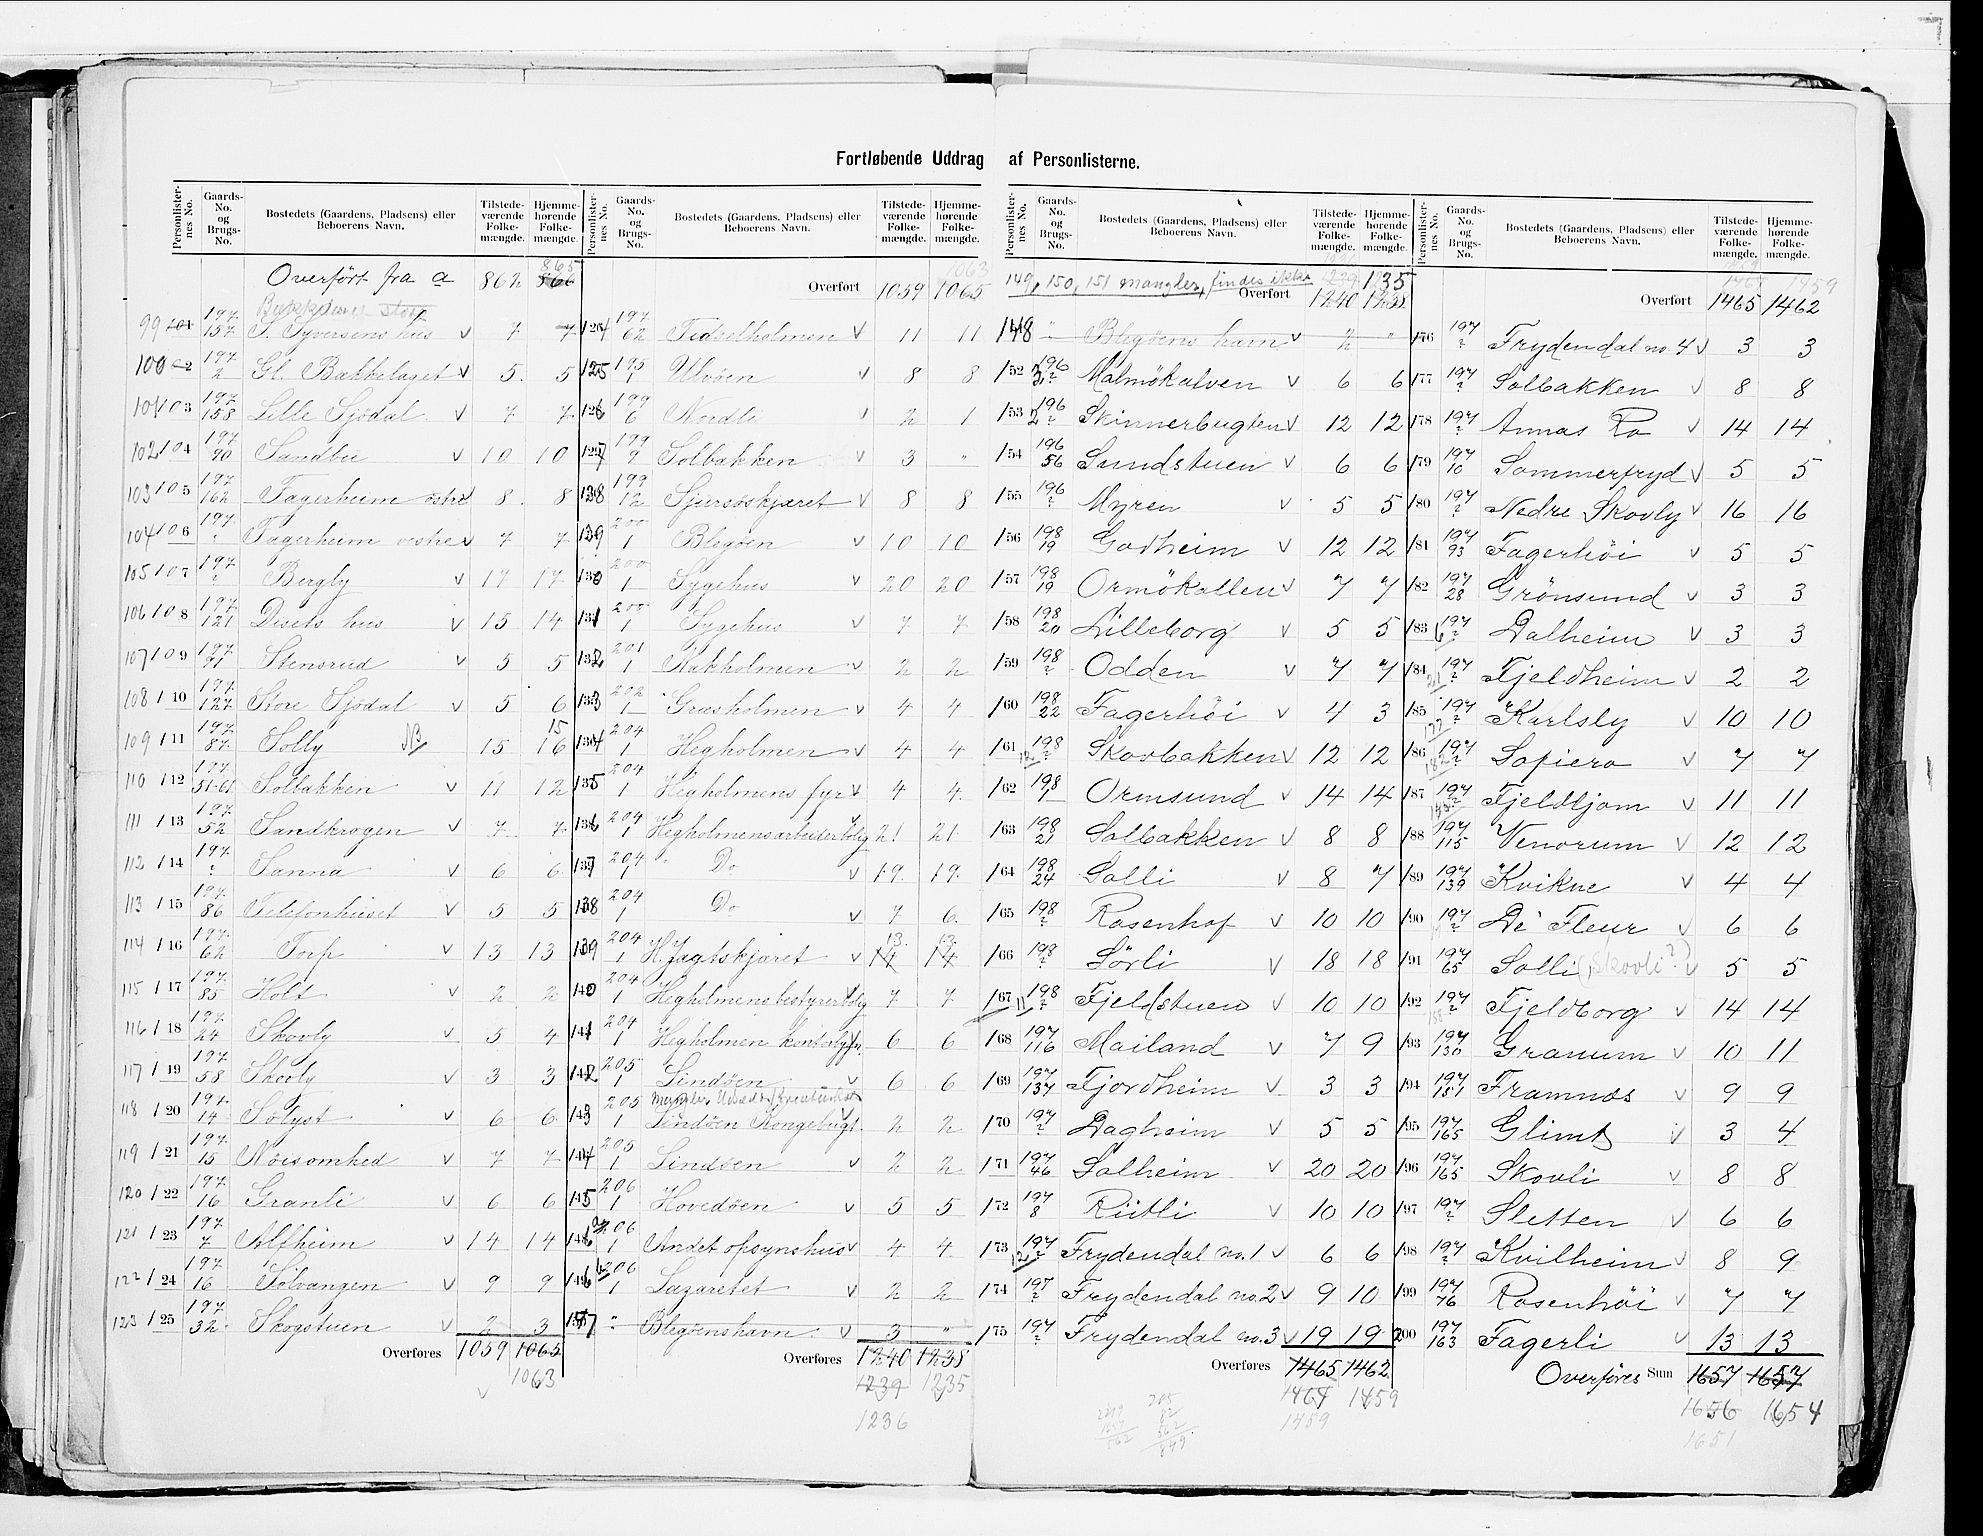 Fortløbende Uddrag af Personlisterne.
Personlister-nes No. Gaards-No. og Brugs-No. Bostedets (Gaardens, Pladsens) eller Beboerens Navn. Tilstede-værende Folke-mængde. Hjemme-hørende Folke-mængde.
Overført fra a 862 866 865
99 197 157 S. Syversens hus v 7 7
100 197 2 Gl. Bakkelaget v 5 5
101 103 197 158 Lille Sjödal v 7 7
102 104 197 90 Sandbu v 10 10
103 105 197 162 Fagerheim östre 8 8
104 106 197 ? Fagerheim vestre v 7 7
105 107 197 ? Bergly v 17 17
106 108 197 121 Disets hus v 15 14
107 109 197 71 Stensrud v 5 5
108 110 197 127 Store Sjödal v 5 6
109 111 197 87 Solly NB 15 16 15
110 112 197 51-61 Solbakken v 11 12
111 113 197 52 Sandkrogen v 7 7
112 114 197 ? Sanna v 6 6
113 115 197 86 Telefonhuset v 5 5
114 116 197 62 Torp v 13 13
115 117 197 85 Holt v 2 2
116 118 197 24 Skovly v 5 4
117 119 197 58 Skovly v 3 3
118 120 197 14 Sölyst v 6 6
119 121 197 15 Nöisomhed v 7 7
120 122 197 16 Granli v 6 6
121 123 197 7 Alfheim v 14 14
122 124 197 16 Solvangen v 9 9
123 125 197 32 Skogstuen v 2 3
Overføres 1059 1065
1063
Personlister-nes No. Gaards-No. og Brugs-No. Bostedets (Gaardens, Pladsens) eller Beboerens Navn. Tilstede-værende Folke-mængde. Hjemme-hørende Folke-mængde.
1063
Overført 1059 1065
124 197 62 Tidselholmen v 11 11
125 195 1 Ulvöen v 8 8
126 199 6 Nordli v 2 1
127 199 9 Solbakken v 3 "
128 199 12 Sjursöskjæret v 8 8
129 200 1 Blegöen v 10 10
130 200 1 Sygehus v 20 20
131 200 1 Sygehus v 7 7
132 201 1 Nakholmen v 2 2
133 202 1 Græsholmen v 4 4
134 204 1 Hegholmen v 4 4
135 204 1 Hegholmens fyr v 4 4
136 204 1 Hegholmens arbeiderbolig 21 21
137 204 1 Do v 19 19
138 204 1 Do v 7 6
139 204 1 H. Jagtskjæret v 14 14 13 13
140 204 1 Hegholmens bestyrerbolig 7 7
141 204 1 Hegholmen kontorbygn. 6 6
142 205 1 Lindöen v 6 6
143 205 1 Lindöen Kongebugt 2 2
144 205 1 Lindöen v 2 2
145 206 1 Hovedöen v 5 5
146 a 206 1 Andet opsynshus v 4 4
146 b 206 1 Lazarettet v 2 2
147 " Blegöenshavn v 3 "
Overføres 1240 1238
1239 1235
1236
Personlister-nes No. Gaards-No. og Brugs-No. Bostedets (Gaardens, Pladsens) eller Beboerens Navn. Tilstede-værende Folke-mængde. Hjemme-hørende Folke-mængde.
149, 150, 151 mangler, findes ikke 1239 1235
Overført 1240 1238
148 " Blegöens havn v 2 "
152 196 ? Malmökalven v 6 6
153 196 ? Skinnerbugten v 12 12
154 196 56 Sundstuen v 6 6
155 196 ? Myren v 5 5
156 198 19 Godheim v 12 12
157 198 19 Ormökollen v 7 7
158 198 20 Lilleborg v 5 5
159 198 ? Odden v 7 7
160 198 22 Fagerhöi v 4 3
161 198 ? Skovbakken v 12 12
162 198 1 Ormsund v 14 14
163 198 21 Solbakken v 8 8
164 198 24 Solli v 8 7
165 198 ? Rosenhof v 10 10
166 198 ? Sörli v 18 18
167 198 ? Fjeldstuen v 10 10
168 197 116 Mailand v 7 9
169 197 137 Fjordheim v 3 3
170 197 ? Dagheim v 5 5
171 197 46 Solheim v 20 20
172 197 8 Rütli v 10 10
173 197 ? Frydendal no. 1 v 6 6
174 197 ? Frydendal no. 2 v 9 10
175 197 ? Frydendal no. 3 v 19 19
Overføres 1465 1462
1464 1459
1459
Personlister-nes No. Gaards-No. og Brugs-No. Bostedets (Gaardens, Pladsens) eller Beboerens Navn. Tilstede-værende Folke-mængde. Hjemme-hørende Folke-mængde.
1459
Overført 1465 1462
176 197 ? Frydendal no. 4 v 3 3
177 197 ? Solbakken v 8 8
178 197 ? Annas Ro v 14 14
179 197 10 Sommerfryd v 5 5
180 197 ? Nedre Skovly v 16 16
181 197 93 Fagerhöi v 5 5
182 197 28 Grönsund v 3 3
183 197 ? Dalheim v 3 3
184 197 ? Fjeldheim v 2 2
185 197 ? Karlsly v 10 10
186 197 ? Sofiero v 7 7
187 197 ? Fjeldljom v 11 11
188 197 115 Venorum v 12 12
189 197 139 Kvikne v 4 4
190 197 ? De Fleur v 6 6
191 197 65 Solli (Skovli?) v 5 5
192 197 ? Fjeldborg v 14 14
193 197 130 Granum v 10 11
194 197 151 Framnæs v 9 9
195 197 165 Glimt v 3 4
196 197 165 Skovli v 8 8
197 197 ? Sletten v 6 6
198 197 ? Kvilheim v 8 9
199 197 76 Rosenhöi v 7 7
200 197 163 Fagerli v 13 13
Overføres Sum 1657 1657
1656 1654
1651